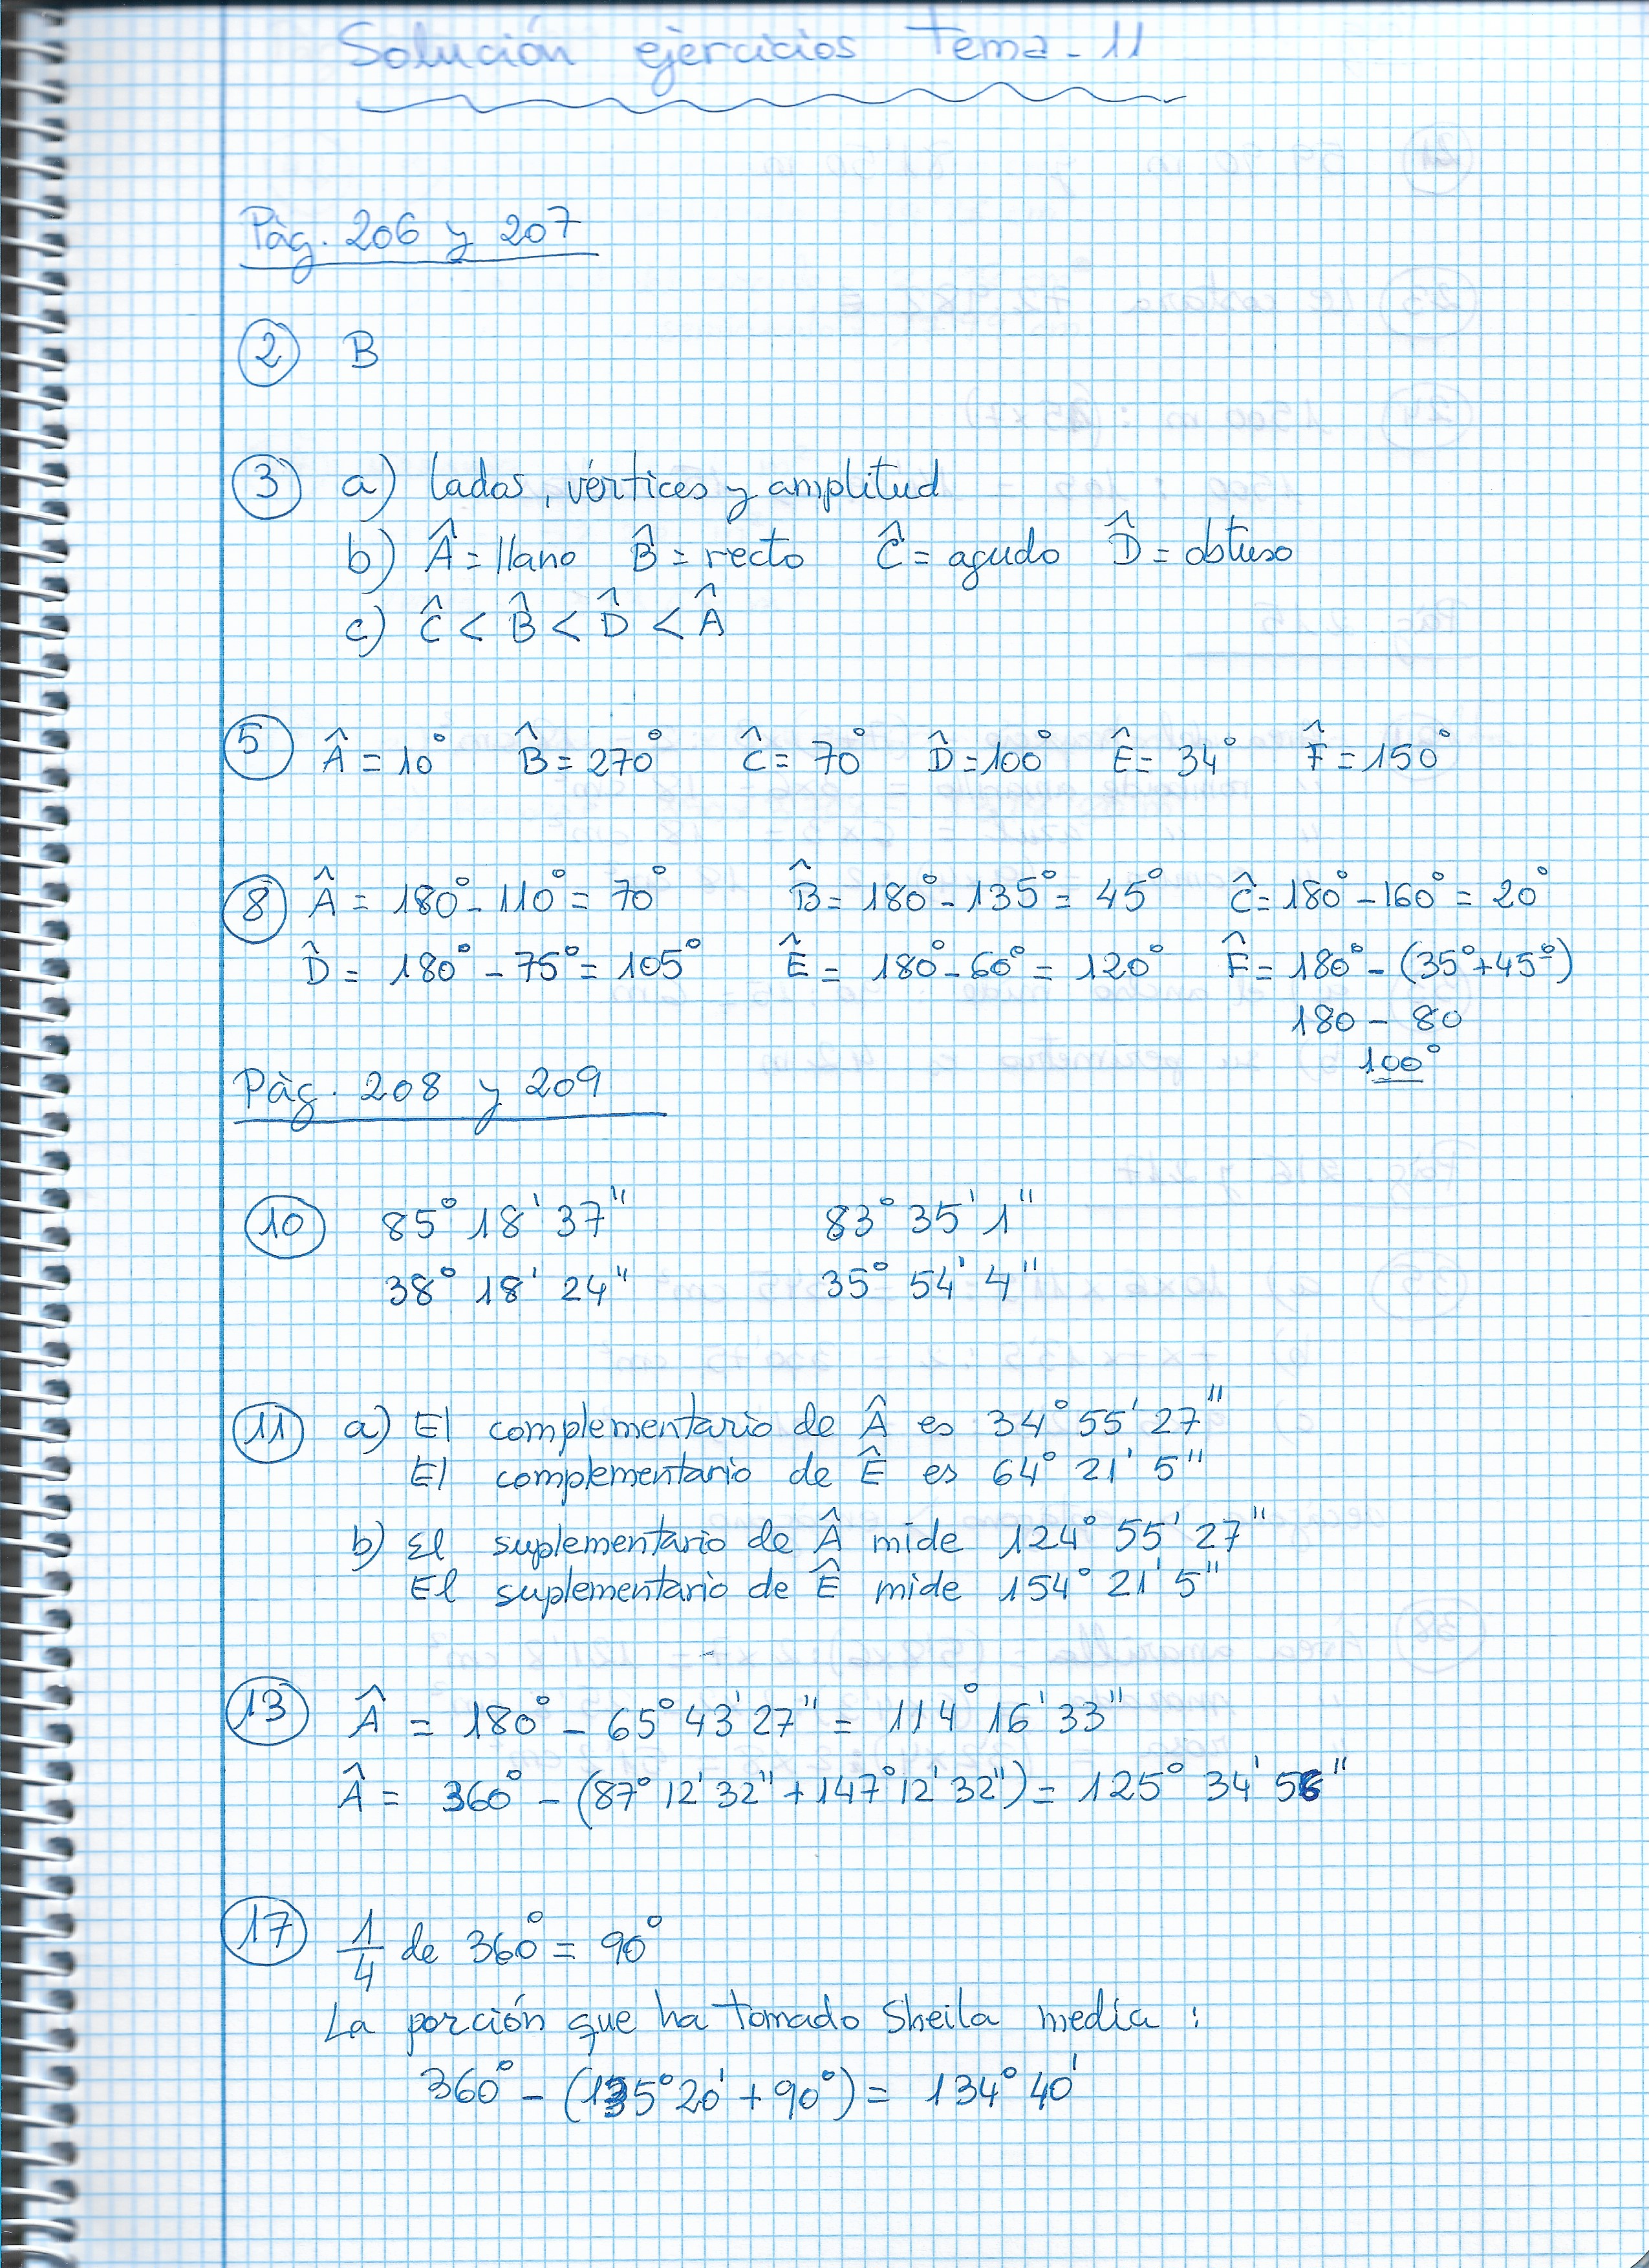 Solución ejercicios Tema-11
Pàg. 206 y 207
2 B
3 a) lados, vértices y amplitud
b) Â = llano B̂ = recto Ĉ = agudo D̂ = obtuso
c) Ĉ < B̂ < D̂ < Â
5 Â = 10° B̂ = 270° Ĉ = 70° D̂ = 100° Ê = 34° F̂ = 150°
8 Â = 180° - 110° = 70° B̂ = 180° - 135° = 45° Ĉ = 180° - 160° = 20°
D̂ = 180° - 75° = 105° Ê = 180° - 60° = 120° F̂ = 180° - (35° + 45°)
180 - 80
100°
Pàg. 208 y 209
10 85° 18' 37" 83° 35' 1"
38° 18' 24" 35° 54' 4"
11 a) El complementario de Â es 34° 55' 27"
El complementario de Ê es 64° 21' 5"
b) El suplementario de Â mide 124° 55' 27"
El suplementario de Ê mide 154° 21' 5"
13 Â = 180° - 65° 43' 27" = 114° 16' 33"
Â = 360° - (87° 12' 32" + 147° 12' 32") = 125° 34' 56"
17 1/4 de 360° = 90°
La porción que ha tomado Sheila medía :
360° - (135° 20' + 90°) = 134° 40'